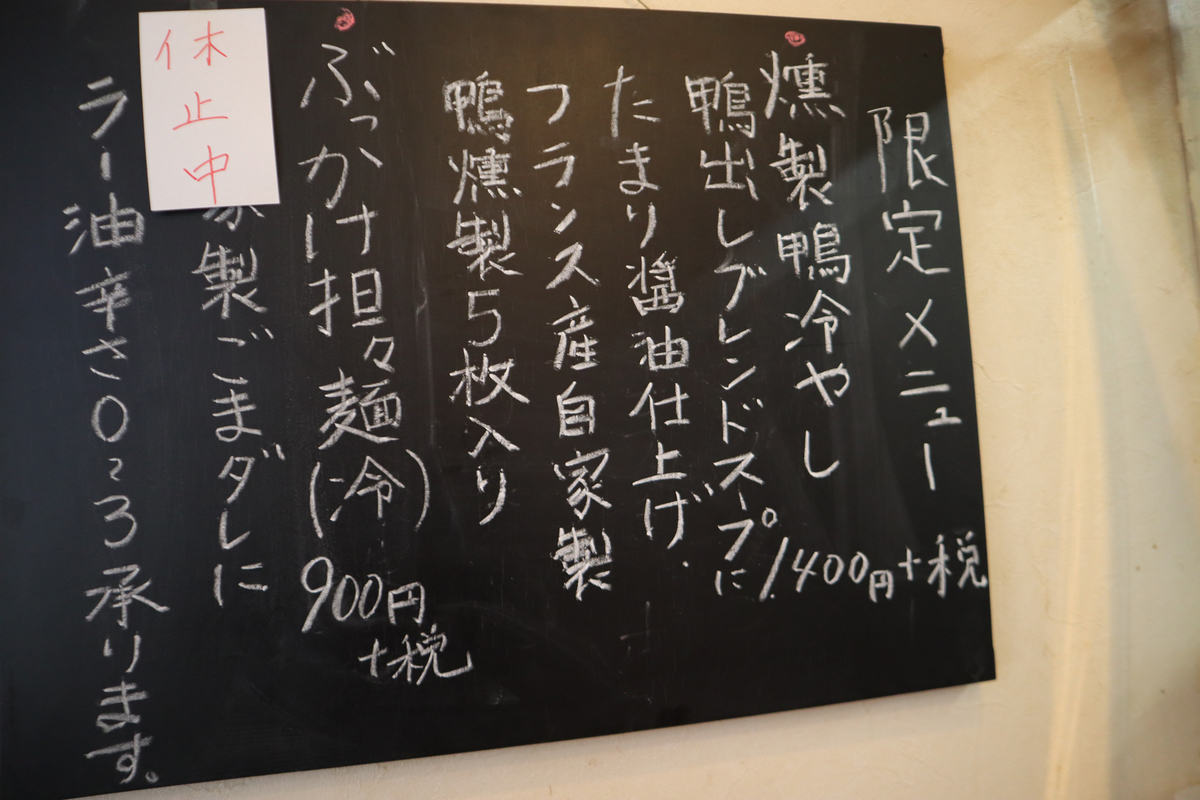 限定メニュー
燻製鴨冷やし
1,400円+税
鴨出しブレンドスープに
たまり醤油仕上げ
フランス産自家製
鴨燻製5枚入り
ぶっかけ担々麺(冷)
900円
+税
家製ごまダレに
ラー油辛さ0~3承ります。
休止中